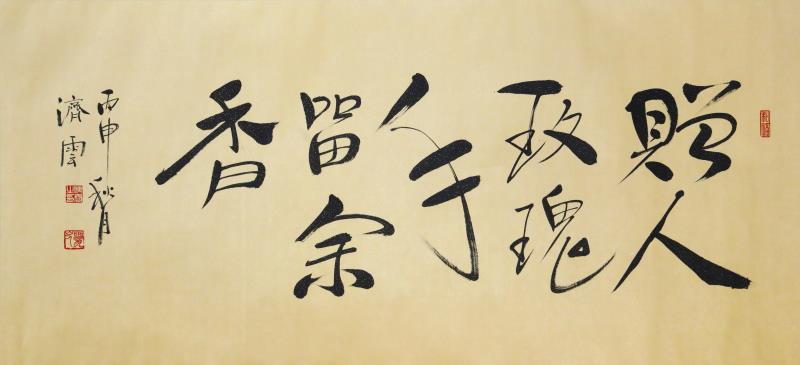 贈人
玫瑰
手
留余
香
丙申秋月
濟雲